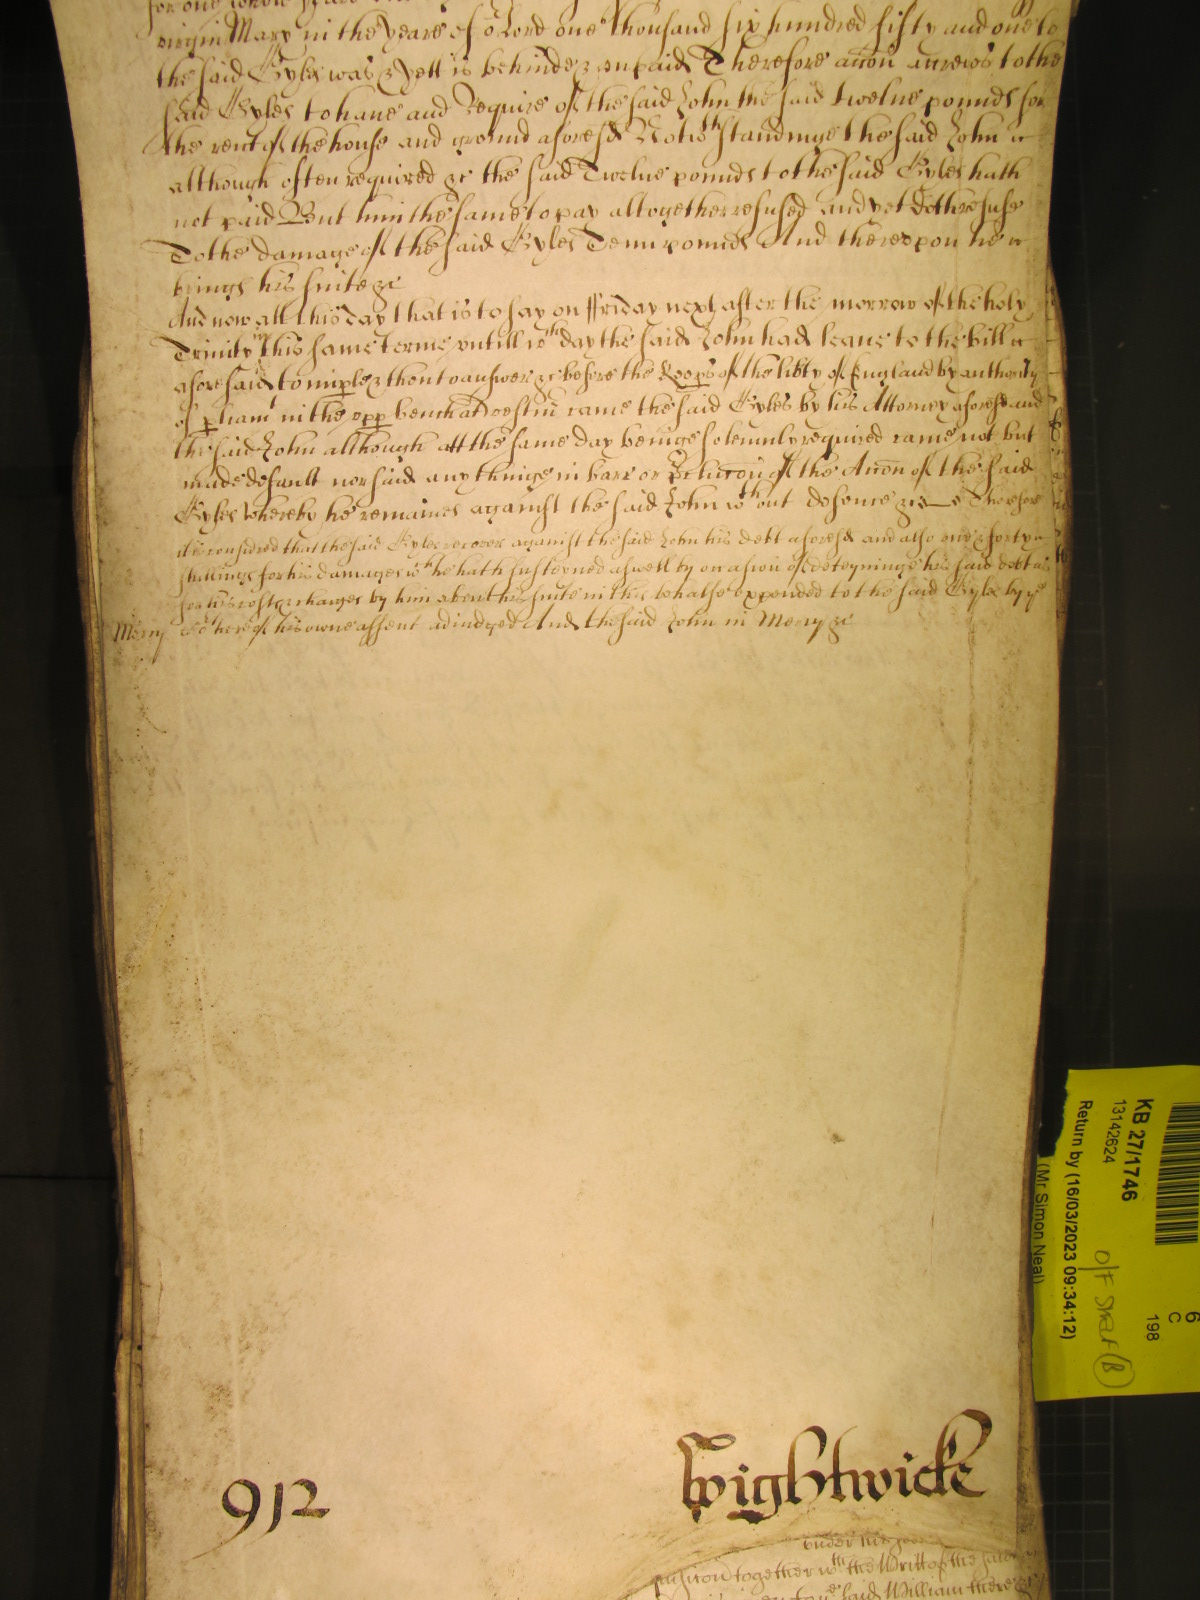 for one whole yeare
virgin Mary in the yeare of o Lord one thousand six hundred fifty and one to
the said Gyles was & yett is behinde & vnpaid Therefore accon accrews to the
said Gyles to haue and Require of the said John the said twelue pounds for
the rent of the house and ground aforesd Notwthstandinge the said John
although often required &c the said Twelue pounds to the said Gyles hath
not paid But him the same to pay altogether refused and yet doth refuse
To the damage of the said Gyles Tenn pounds And therevpon he
brings his suite &c
And now att this day that is to say on ffriday next after the morrow of the holy
Trinity in this same terme vntill wch day the said John had leaue to the bill
aforesaid to imple & then to answer &c before the Keeps of the libty of England by authority
of pliamt in the vpp bench at Westm came the said Gyles by his Attorney aforesd and
the said John although att the same day beinge solemnly required came not but
made default nor said any thinge in barr or Preclucon of the Accon of the said
Gyles whereby he remaines against the said John wthout defence &c Therefore
it is considred that the said Gyles recover against the said John his debt aforesd and also one & forty
shillings for his damages wch he hath susteyned aswell by occasion of deteyninge his said debt as
for his costs & charges by him about his suite in this behalfe expended to the said Gyles by ye
Mercy Co here of his owne assent adiudged And the said John in Mercy &c
KB 27/1746
13142624
Return by (16/03/2023 09:34:12)
(Mr Simon Neal)
6
C
198
O/F Shelf (B)
912
Wightwicke
under the
together wth the Writt of the said
said William there